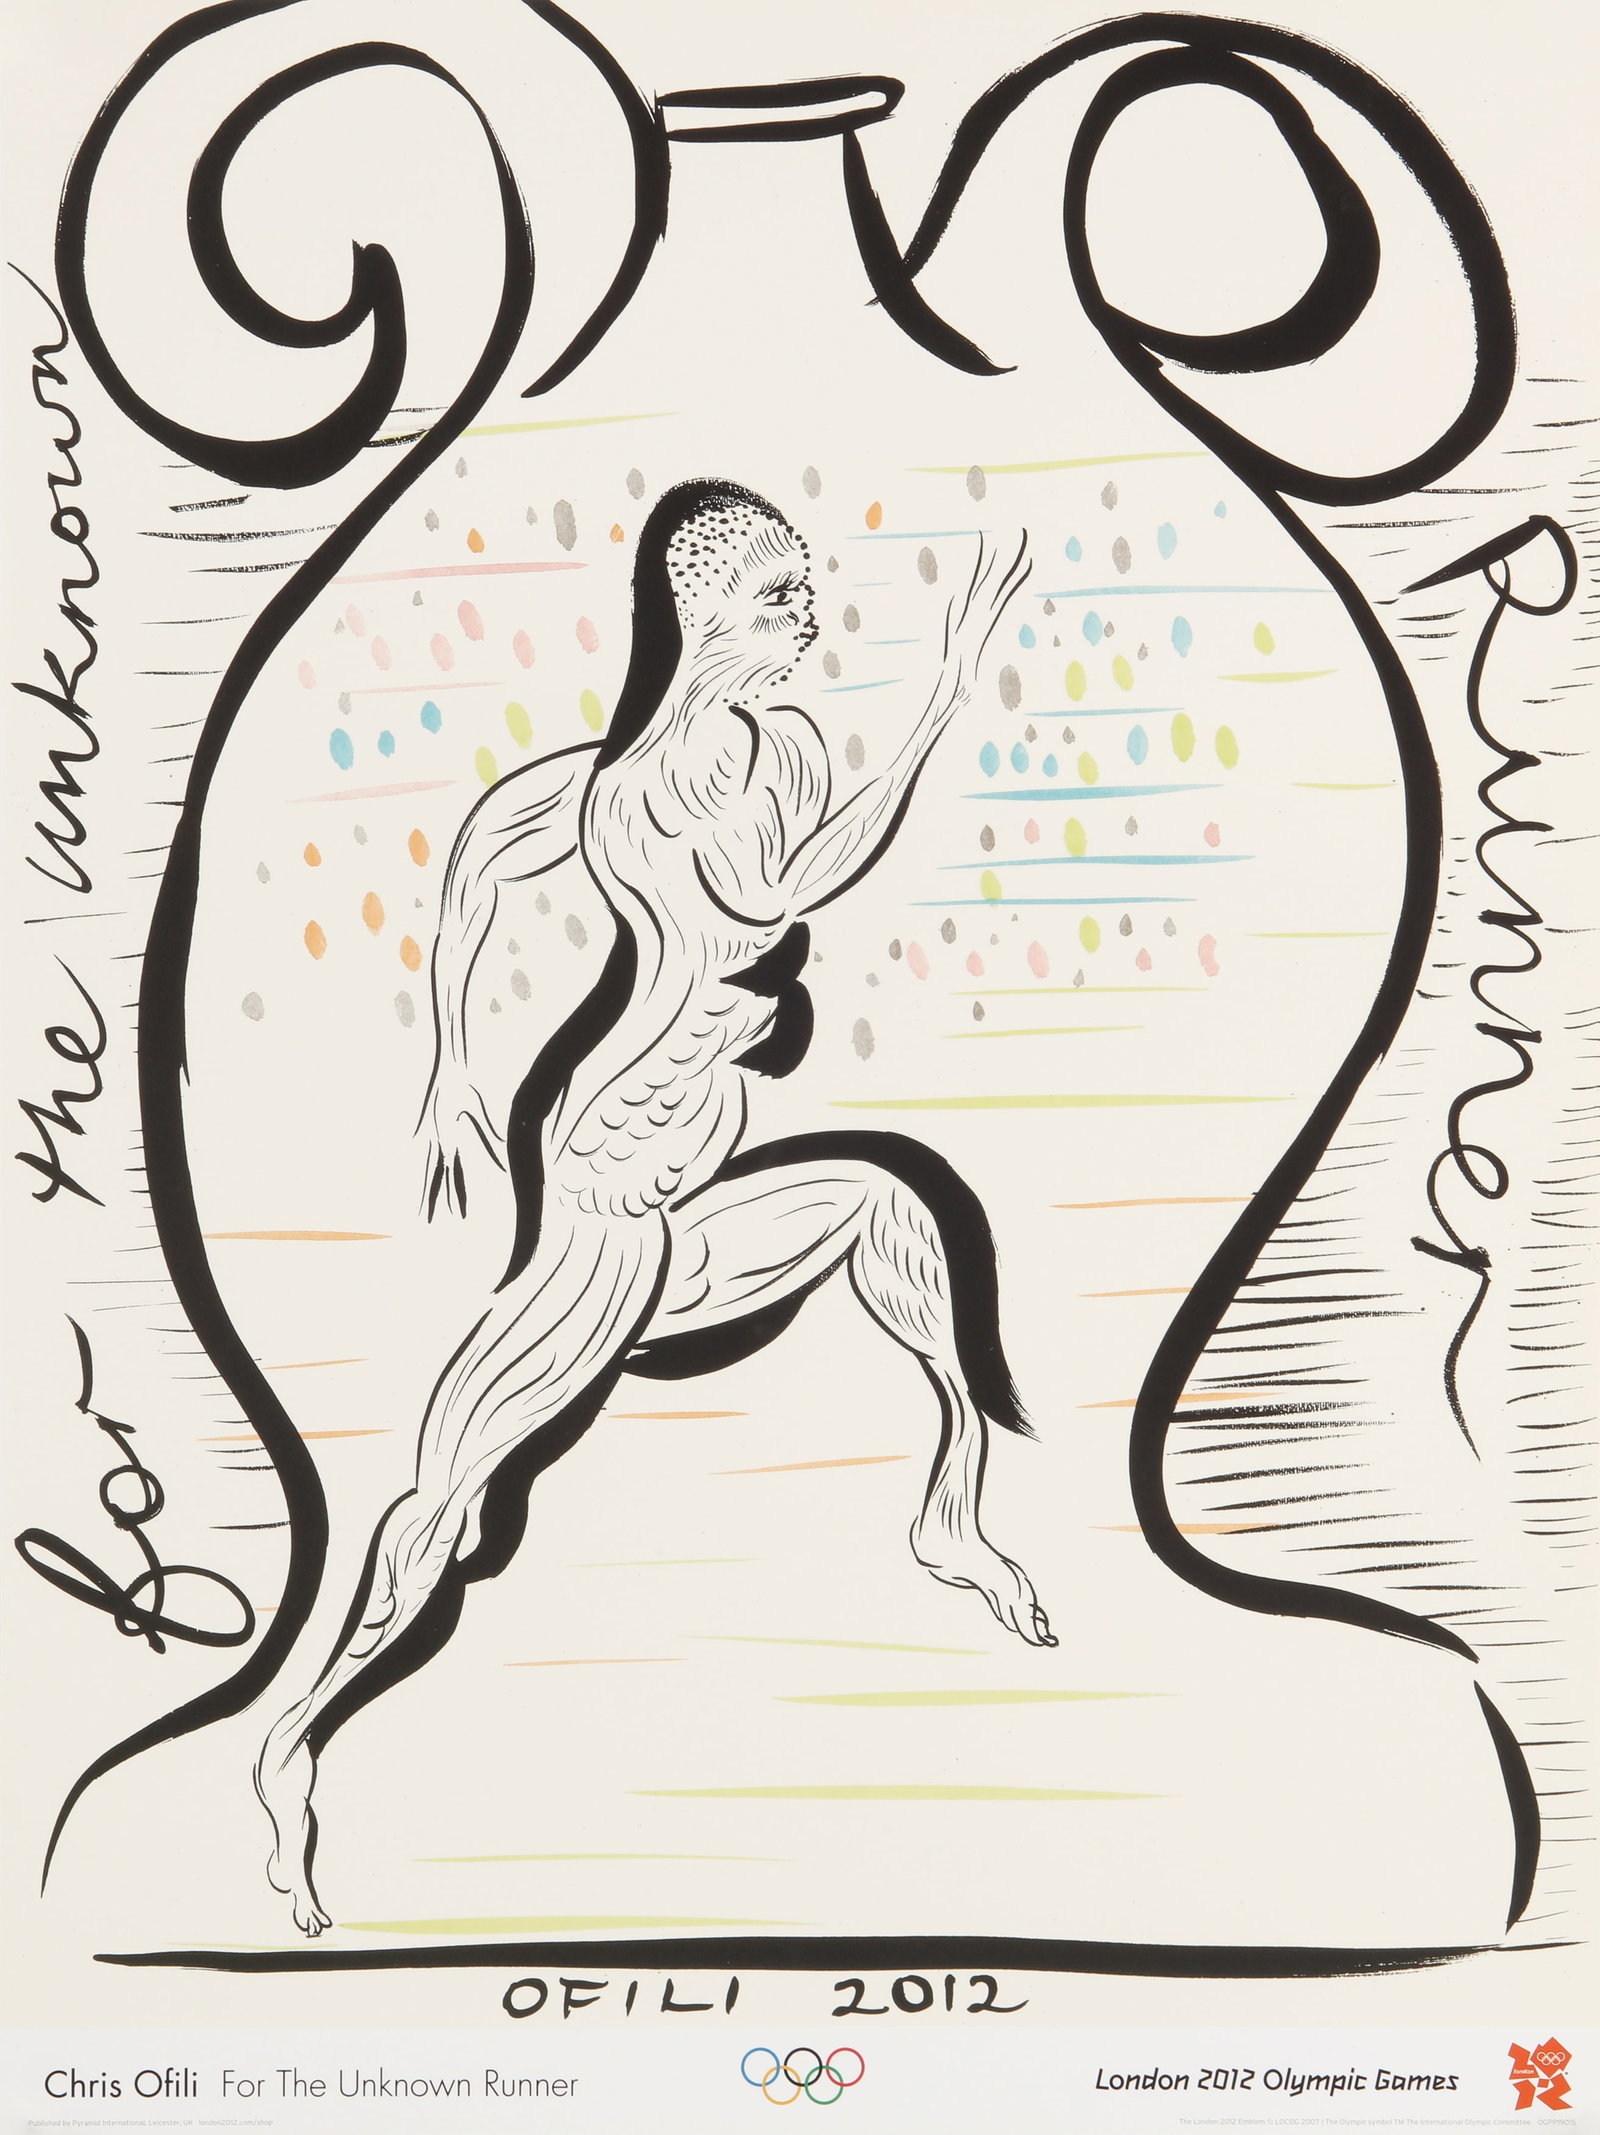 For the Unknown
Runner
OFILI 2012
Chris Ofili For The Unknown Runner
London 2012 Olympic Games
london
Published by Pyramid International, Leicester, UK london2012.com/shop
The London 2012 Emblem © LOCOG 2007 | The Olympic symbol TM The International Olympic Committee. OGPP19015